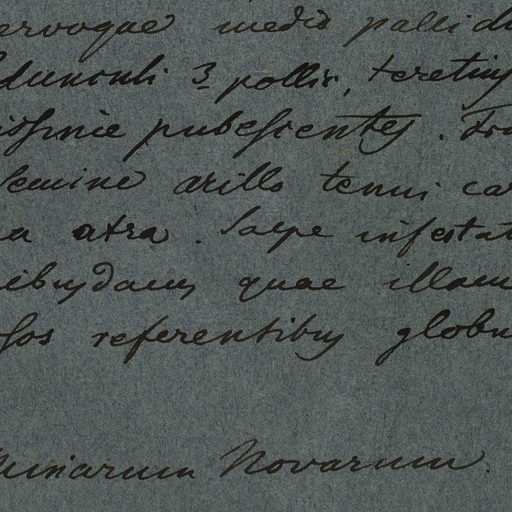 ervoque medio pallidi
dunculi 3 pollic, teretius
issime pubescentes. Fru
semine arillo tenui car
a atra. Saepe infestat
ibusdam, quae illam
sos referentibus globu
Minarum Novarum.